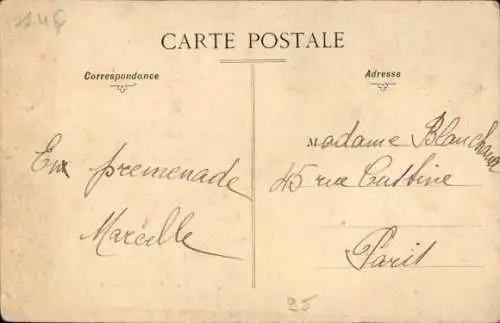 146
CARTE POSTALE
Correspondance
Adresse
En promenade
Marcelle
Madame Blanchard
45 rue Custine
Paris
95